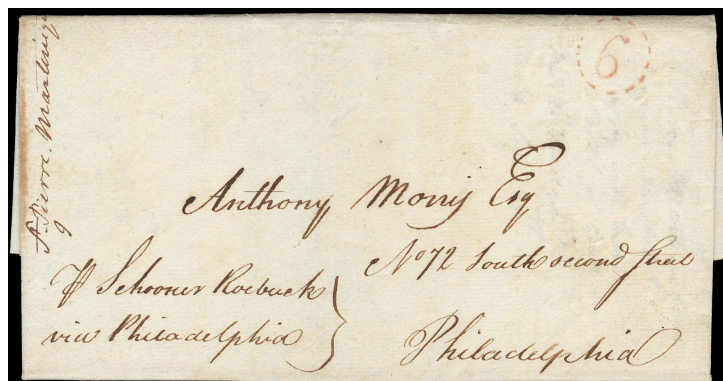 St. Pierre. Martiniq
9
6
Anthony Morris Esq
No 72 South second street
Philadelphia
Schooner Roebuck
via Philadelphia